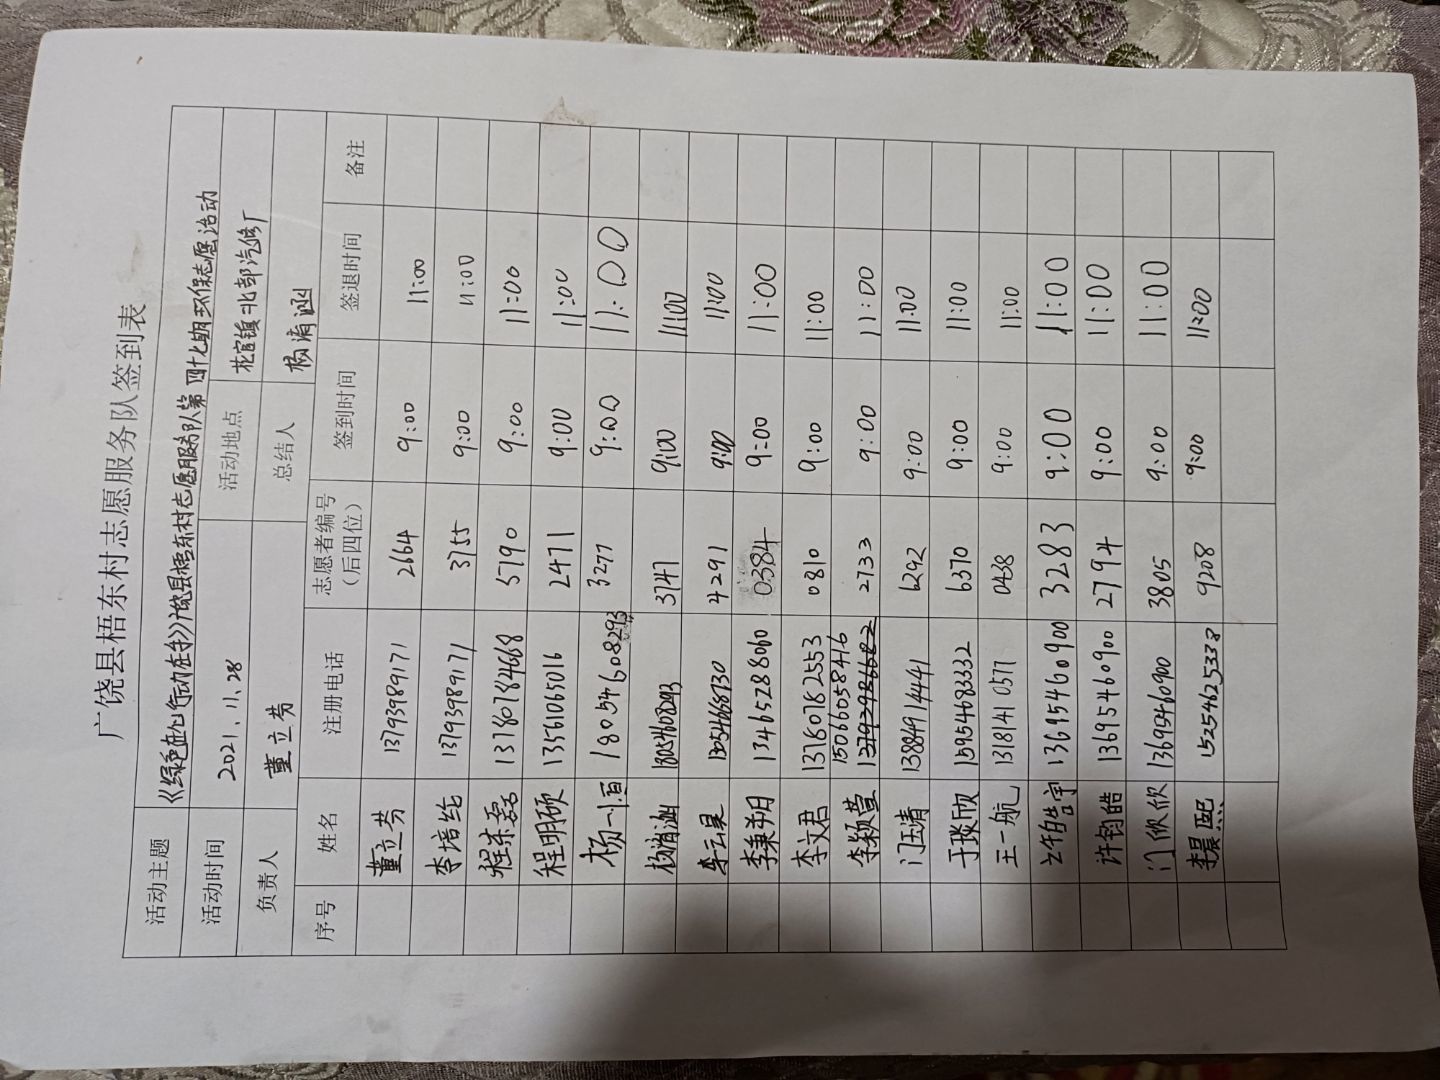 广饶县梧东村志愿服务队签到表
活动主题 《绿色出行行动在手》广饶县梧东村志愿服务队第四十七期环保志愿活动
活动时间 2021.11.28 活动地点 花官镇北部汽修厂
负责人 董立芳 总结人 杨湑涵
序号 姓名 注册电话 志愿者编号（后四位） 签到时间 签退时间 备注
董立芳 13793989171 2664 9:00 11:00
李培纶 13793989171 3755 9:00 11:00
程栋磊 13780784668 5790 9:00 11:00
程明硕 13561065016 2471 9:00 11:00
杨一百 18054608293 3277 9:00 11:00
杨湑涵 18054608293 3747 9:00 11:00
李云昊 13254668730 4291 9:00 11:00
李秉朔 13465288060 0384 9:00 11:00
李文君 13780782553 0810 9:00 11:00
李颖萱 15066058416 2733 9:00 11:00
门珏清 13884914441 6292 9:00 11:00
于琰欣 15954683332 6370 9:00 11:00
王一航 13181410577 0438 9:00 11:00
许皓宇 13695460900 3283 9:00 11:00
许钧皓 13695460900 2794 9:00 11:00
门欣欣 13695460900 3805 9:00 11:00
李晨熙 15254625338 9208 9:00 11:00